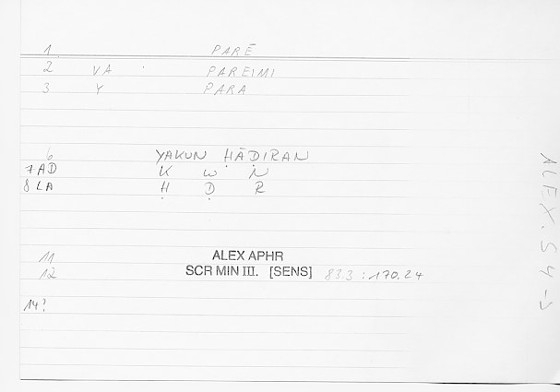 1 PARĒ
2 VA PAREIMI
3 Y PARA
6 YAKUN ḤĀḌIRAN
7 AD K W N
8 LA Ḥ Ḍ R
11 ALEX APHR
12 SCR MIN III. [SENS] 83.3 : 170.24
14?
ALEX.S4-5